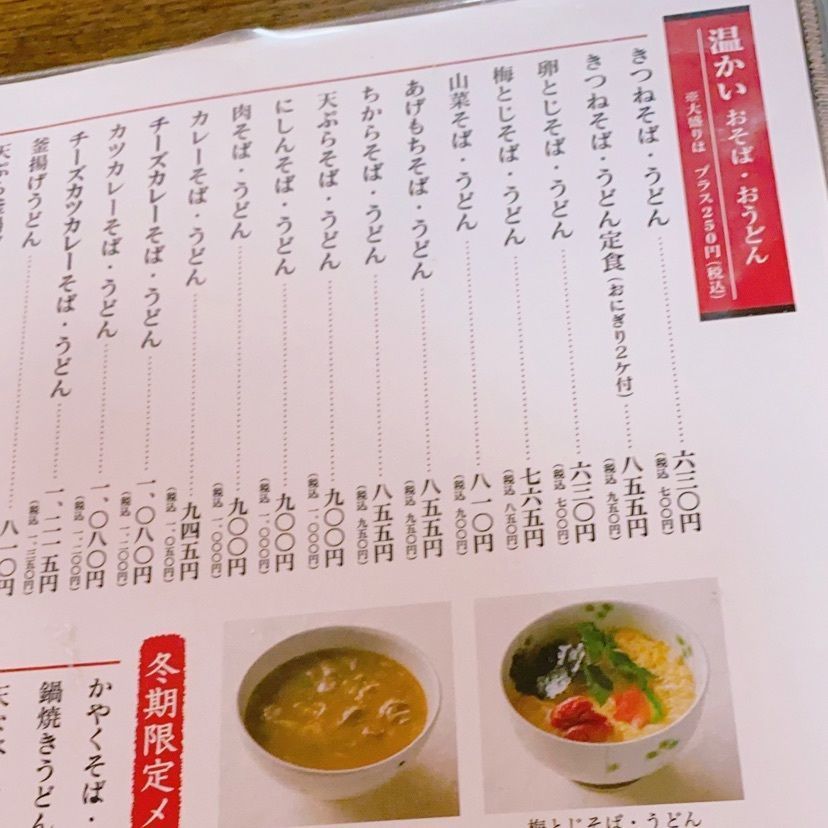 温かい おそば・おうどん
※大盛りは プラス250円(税込)
きつねそば・うどん 六三〇円
(税込 七〇〇円)
きつねそば・うどん定食(おにぎり2ケ付) 八五五円
(税込 九五〇円)
卵とじそば・うどん 六三〇円
(税込 七〇〇円)
梅とじそば・うどん 七六五円
(税込 八五〇円)
山菜そば・うどん 八一〇円
(税込 九〇〇円)
あげもちそば・うどん 八五五円
(税込 九五〇円)
ちからそば・うどん 八五五円
(税込 九五〇円)
天ぷらそば・うどん 九〇〇円
(税込 一、〇〇〇円)
にしんそば・うどん 九〇〇円
(税込 一、〇〇〇円)
肉そば・うどん 九〇〇円
(税込 一、〇〇〇円)
カレーそば・うどん 九四五円
(税込 一、〇五〇円)
チーズカレーそば・うどん 一、〇八〇円
(税込 一、二〇〇円)
カツカレーそば・うどん 一、〇八〇円
(税込 一、二〇〇円)
チーズカツカレーそば・うどん 一、二一五円
(税込 一、三五〇円)
釜揚げうどん 八一〇円
天ぷら釜揚げ
冬期限定メ
かやくそば・
鍋焼きうどん
梅とじそば・うどん